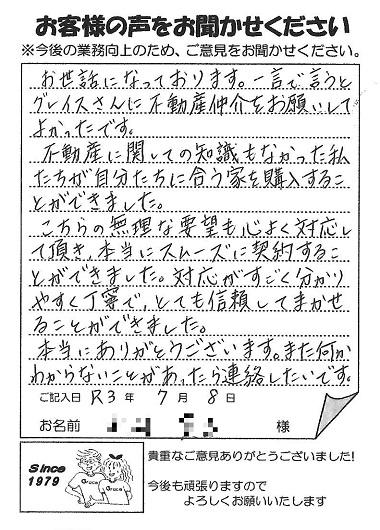 お客様の声をお聞かせください
※今後の業務向上のため、ご意見をお聞かせください。
お世話になっております。一言で言うと
グレイスさんに不動産仲介をお願いして
よかったです。
不動産に関しての知識もなかった私
たちが自分たちに合う家を購入するこ
とができました。
こちらの無理な要望も心よく対応し
て頂き、本当にスムーズに契約するこ
とができました。対応がすごく分かり
やすく丁寧で、とても信頼してまかせ
ることができました。
本当にありがとうございます。また何か
わからないことがあったら連絡したいです。
ご記入日 R3 年 7 月 8 日
お名前 様
Since
1979
Grace
Grace
貴重なご意見ありがとうございました!
今後も頑張りますので
よろしくお願いいたします